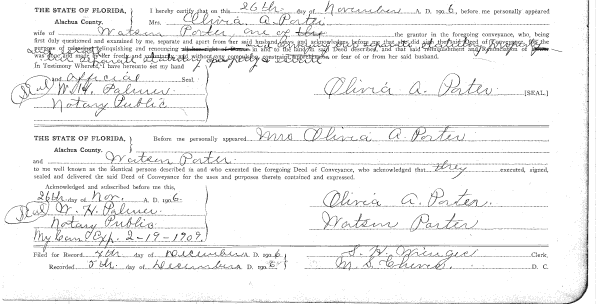 THE STATE OF FLORIDA, I hereby certify that on this 26th day of November A. D. 1906, before me personally appeared
Alachua County. Mrs. Olivia A. Porter
wife of Watson Porter, one of the grantor in the foregoing conveyance, who, being
first duly questioned and examined by me, separate and apart from her said husband
and separate statutory property
In Testimony Whereof, I have hereunto set my hand
and official Seal
(Seal) W. H. Palmer Olivia A. Porter [SEAL]
Notary Public
THE STATE OF FLORIDA, Before me personally appeared Mrs Olivia A. Porter
Alachua County.
and Watson Porter
to me well known as the identical persons described in and who executed the foregoing Deed of Conveyance, who acknowledged that they executed, signed,
sealed and delivered the said Deed of Conveyance for the uses and purposes therein contained and expressed.
Acknowledged and subscribed before me this,
26th day of Nov. A. D. 1906. Olivia A. Porter
(Seal) W. H. Palmer Watson Porter
Notary Public
My Com Exp. 2-19-1909.
Filed for Record 4th day of December A. D. 1906 S. H. Wienges Clerk,
Recorded 5th day of December A. D. 1906 M. S. Cheves D. C.